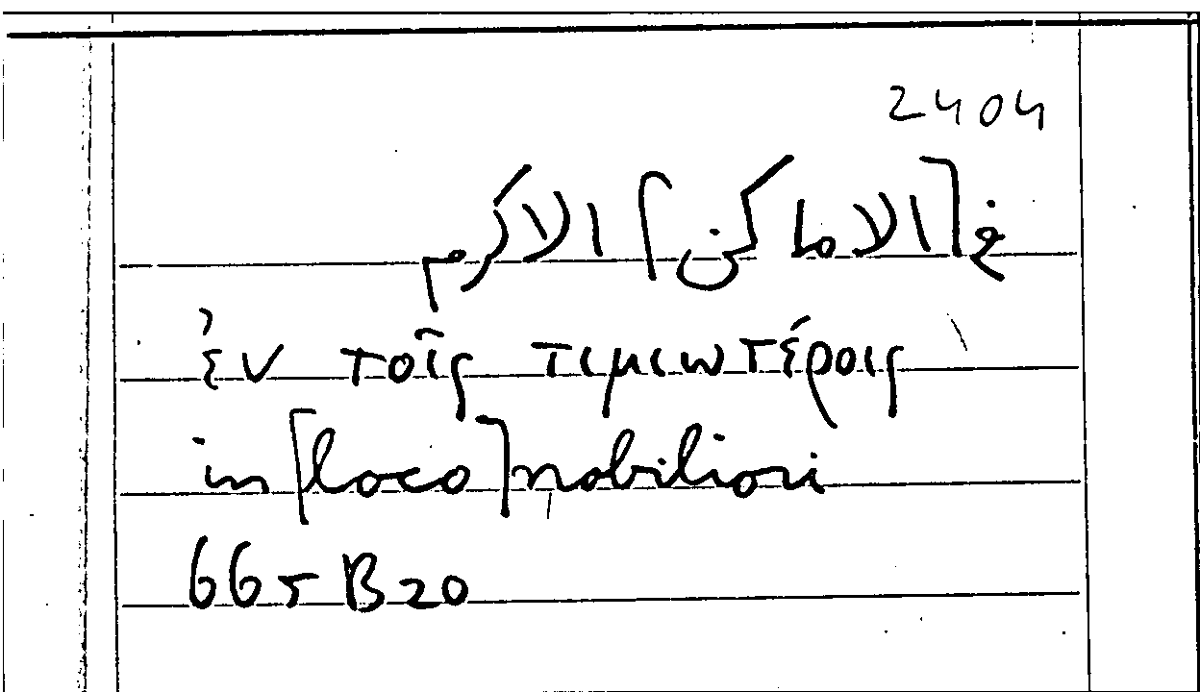 2404
في [الاماكن] الاكرم
ἐν τοῖς τιμιωτέροις
in [loco] nobiliori
665 B 20